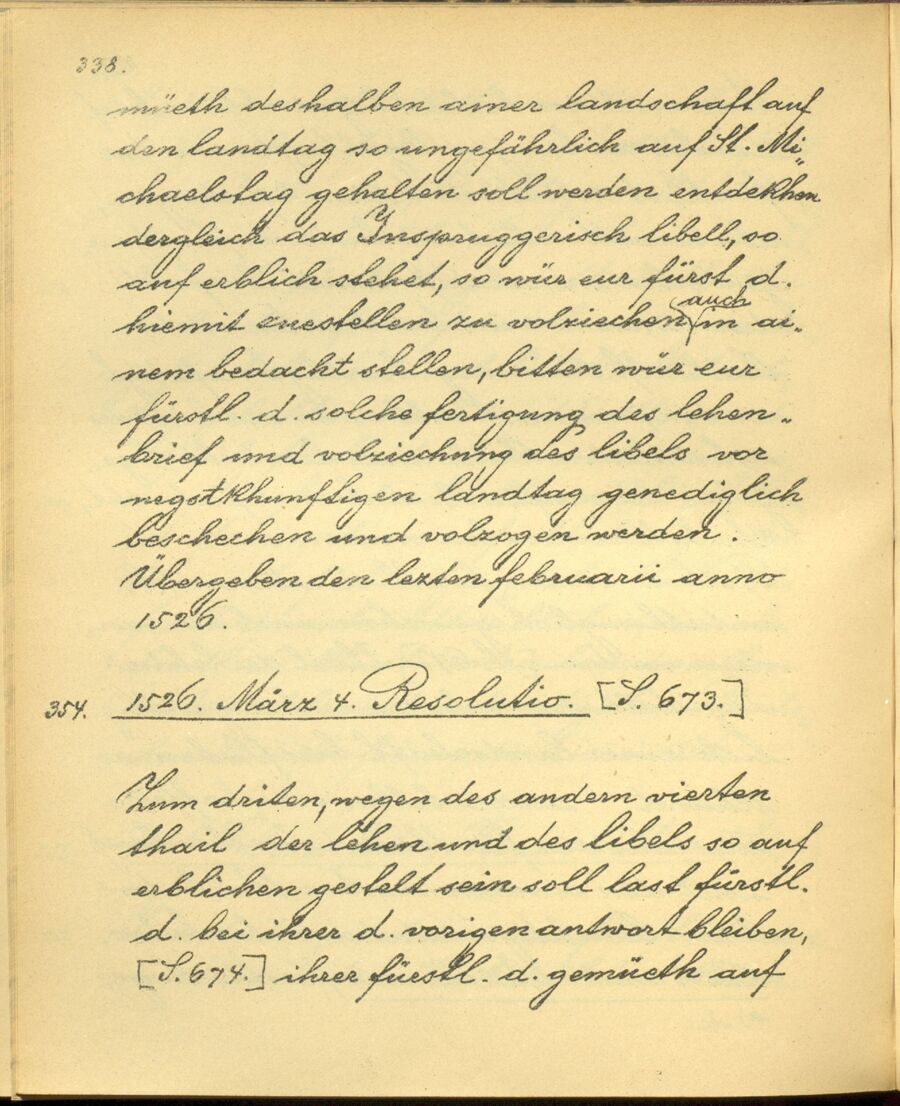 338.
müeth deshalben ainer landschaft auf
den landtag so ungefährlich auf St. Mi„
chaelstag gehalten soll werden entdekhen
dergleich das Inspruggerisch libell, so
auf erblich stehet, so wür eur fürst. d.
hiemit zuestellen zu volziechen auch in ai„
nem bedacht stellen, bitten wür eur
fürstl. d. solche fertigung des lehen„
brief und volziechung des libels vor
negstkhunftigen landtag genediglich
beschechen und volzogen werden.
Übergeben den lezten februarii anno
1526.
354. 1526. März 4. Resolutio. [S. 673.]
Zum driten, wegen des andern vierten
thail der lehen und des libels so auf
erblichen gestelt sein soll last fürstl.
d. bei ihrer d. vorigen antwort bleiben,
[S. 674.] ihrer fürstl. d. gemüeth auf